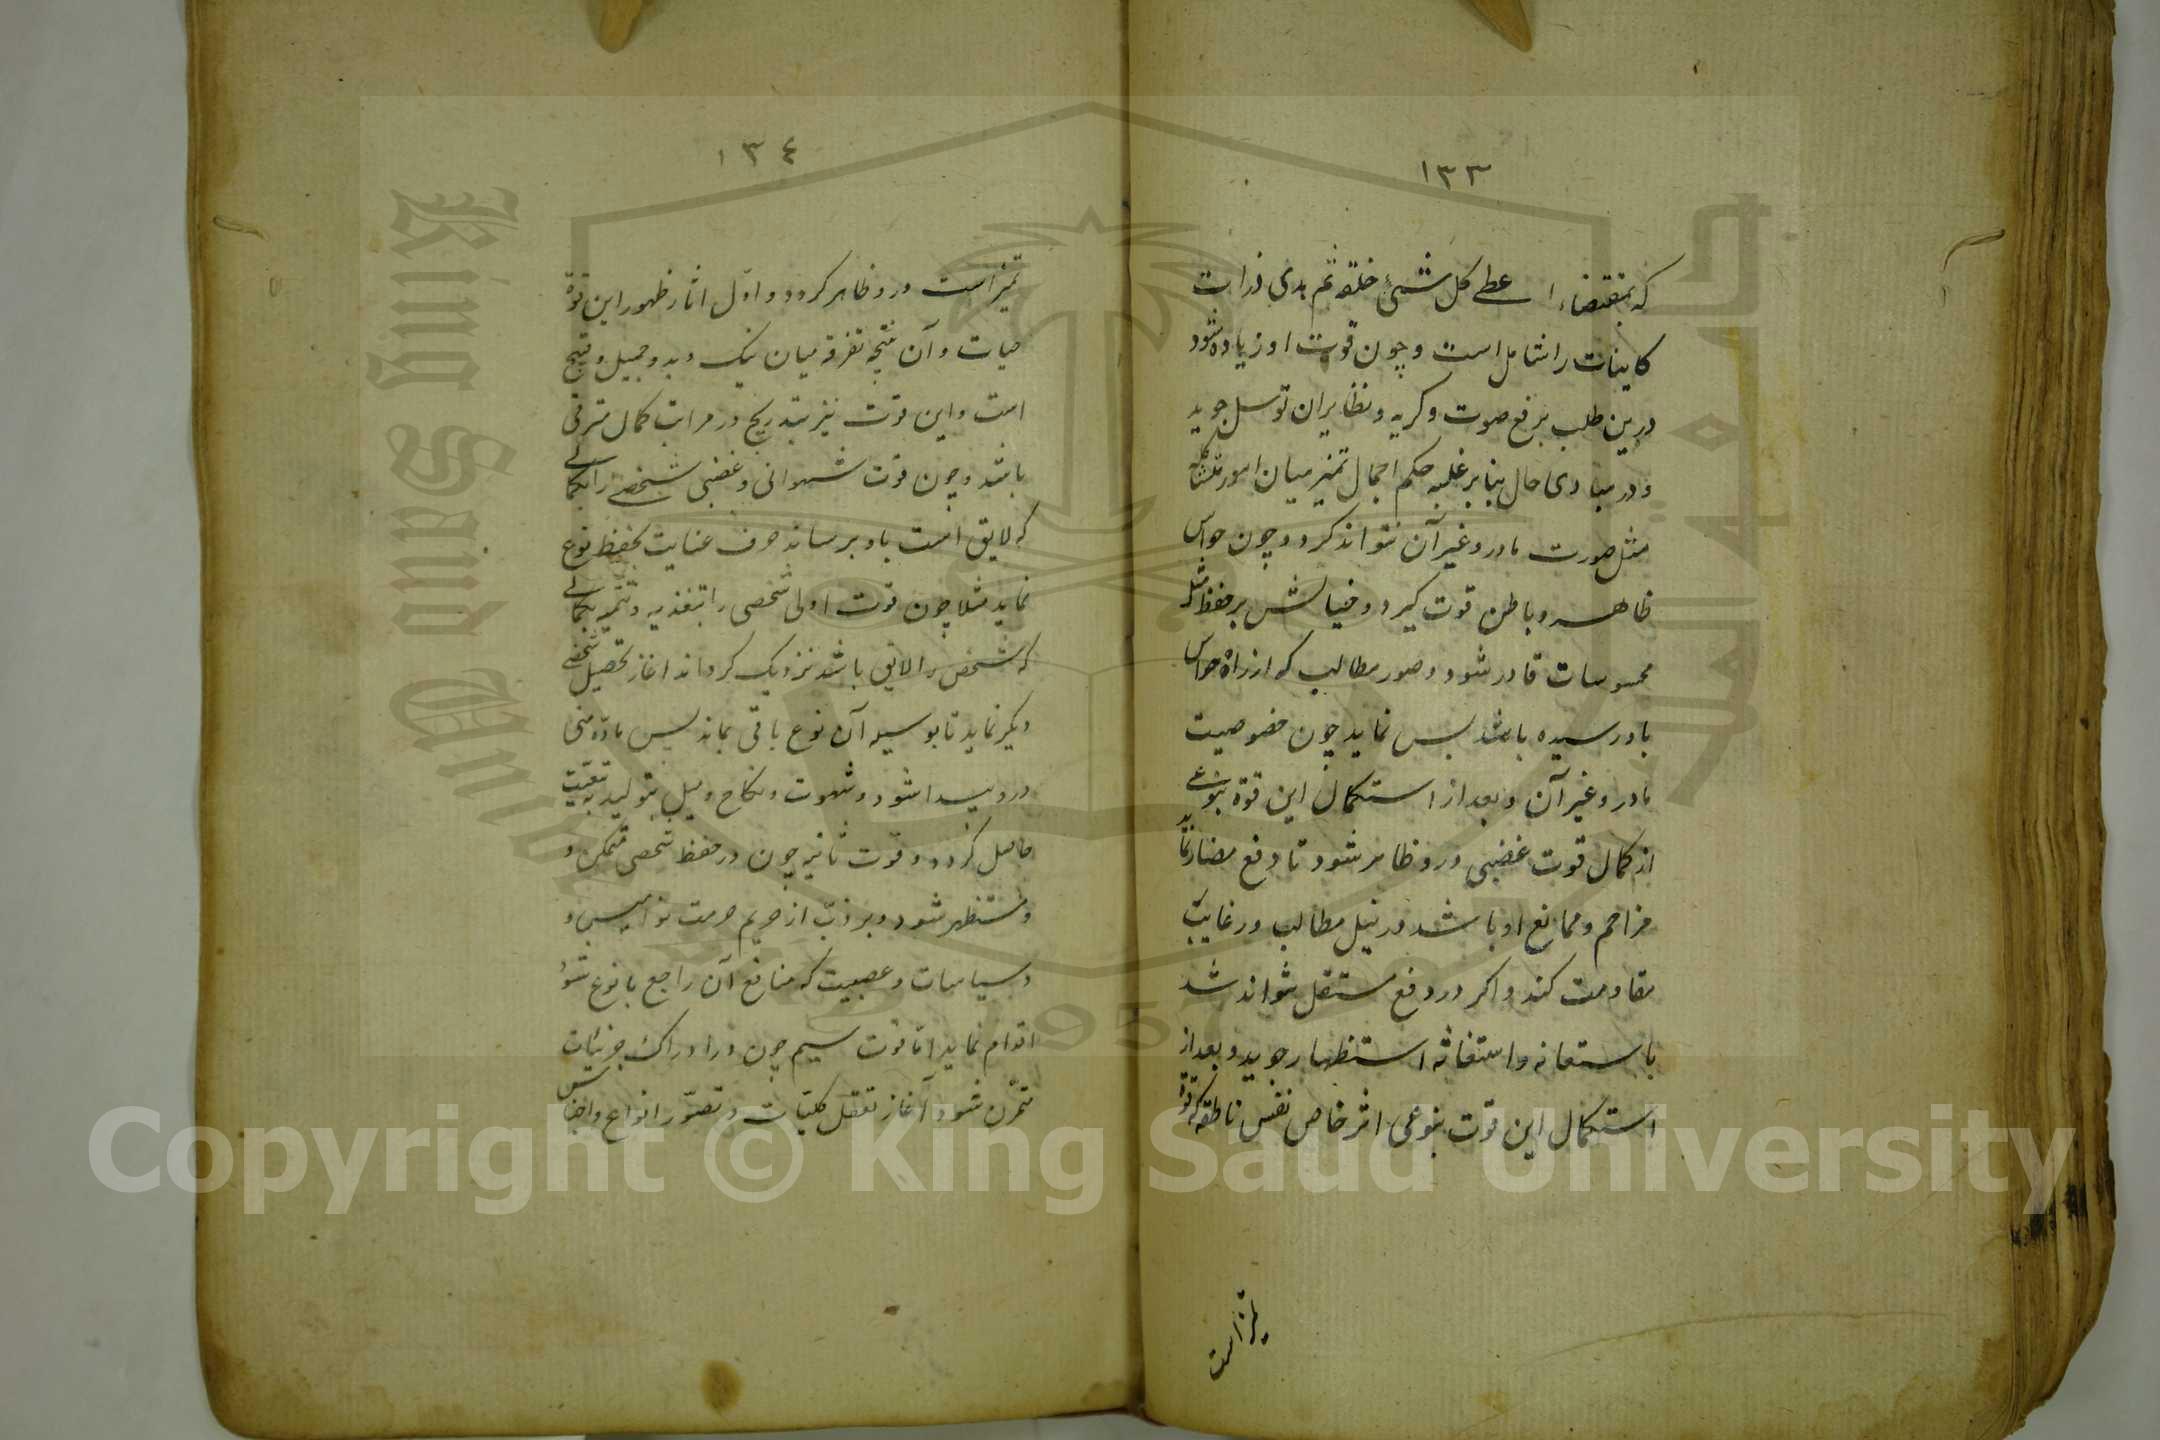 ١٣٣
که بمقتضاء اعطی کل شیئ خلقه ثم هدی ذرات
کاینات را شامل است و چون قوت او زیاده شود
درین طلب برفع صوت و کریه و نظایر ان توسل جوید
و در مبادی حال بنا بر غلبه حکم اجمال تمیز میان امور متشاکله
مثل صورت مادر و غیر آن نتواند کرد و چون حواس
ظاهر و باطن قوت کیرد و خیالش بر حفظ مثل
محسوسات قادر شود و صور مطالب که از راه حواس
باو رسیده باشد بس نماید چون خصوصیت
مادر و غیر آن و بعد از استکمال این قوة بنوعی
از کمال قوت غضبی درو ظاهر شود تا دفع مضار نماید
مزاحم و ممانع او باشد در نیل مطالب و رغایب
مقاومت کند و اکر در دفع مستقل نتواند شد
باستعانه و استغاثه استظهار جوید و بعد از
استکمال این قوت بنوعی اثر خاص نفس ناطقه که قوة
تمیز است
١٣٤
تمیز است درو ظاهر کردد و اول اثار ظهور این قوة
حیات و آن نتیجه تفرقه میان نیک و بد و جمیل و قبیح
است و این قوت نیز بتدریج در مراتب کمال مترقی
باشد و چون قوت شهوانی و غضبی شخص را بکمالی
که لایق است باو برساند صرف عنایت بحفظ نوع
نماید مثلا چون قوت اولی شخصی را بتغذیه و تنمیه بکمالی
که شخص را لایق باشد نزدیک کرداند اغاز تحصیل شخصی
دیکر نماید تا بوسیله آن نوع باقی بماند بس ماده منی
درو پیدا شود و شهوت و نکاح و میل بتولید به تبعیت
حاصل کردد و قوت ثانیه چون در حفظ شخصی متمکن و
و مستظهر شود و بر ذب از حریم حرمت نوامیس و
و سیاسات و عصبیت که منافع آن راجع بانوع شود
اقدام نماید اما قوت سیم چون در ادراک جزئیات
متمرن شود آغاز تعقل کلیات و تصور انواع و اجناس
Copyright © King Saud University
King Saud University
1957